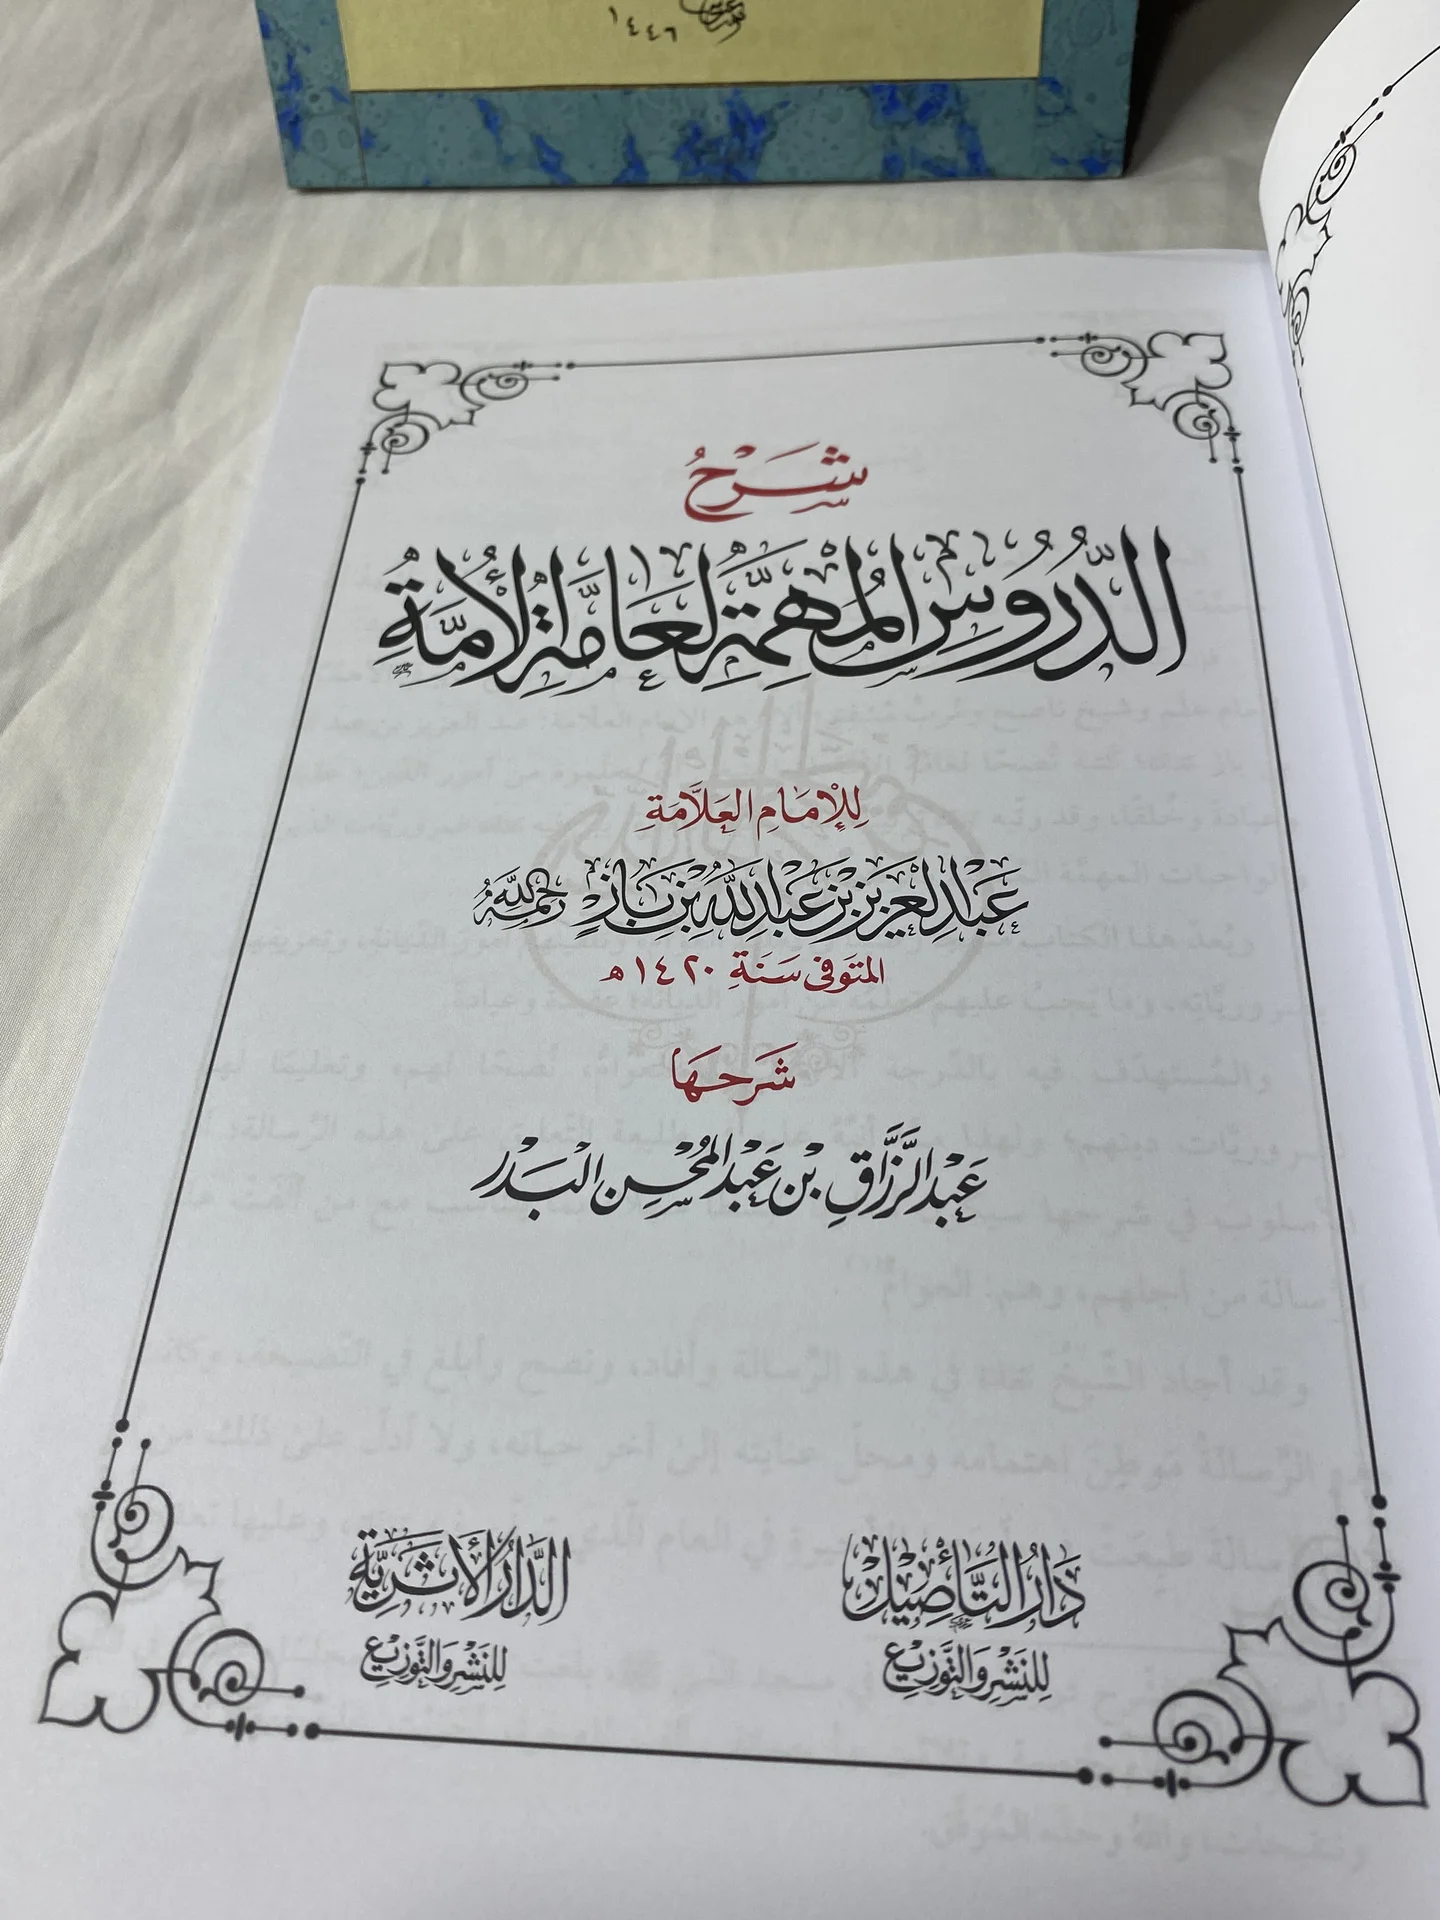 ١٤٤٦
شَرْحُ
الدُّرُوسِ المُهِمَّةِ لِعَامَّةِ الأُمَّةِ
لِلْإِمَامِ العَلَّامَةِ
عَبْدِ العَزِيزِ بْنِ عَبْدِ اللَّهِ بْنِ بَازٍ رَحِمَهُ اللَّهُ
المتوفى سَنَة ١٤٢٠ هـ
شَرَحَهَا
عَبْدُ الرَّزَّاقِ بْنُ عَبْدِ المُحْسِنِ البَدْر
دَارُ التَّأْصِيْل
لِلنَّشْرِ وَالتَّوْزِيع
الدَّارُ الأَثَرِيَّة
لِلنَّشْرِ وَالتَّوْزِيع